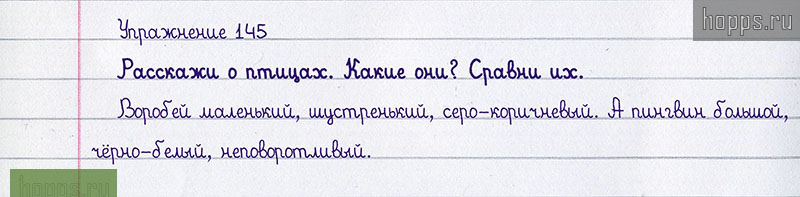 hopps.ru
Упражнение 145
Расскажи о птицах. Какие они? Сравни их.
Воробей маленький, шустренький, серо-коричневый. А пингвин большой,
чёрно-белый, неповоротливый.
hopps.ru